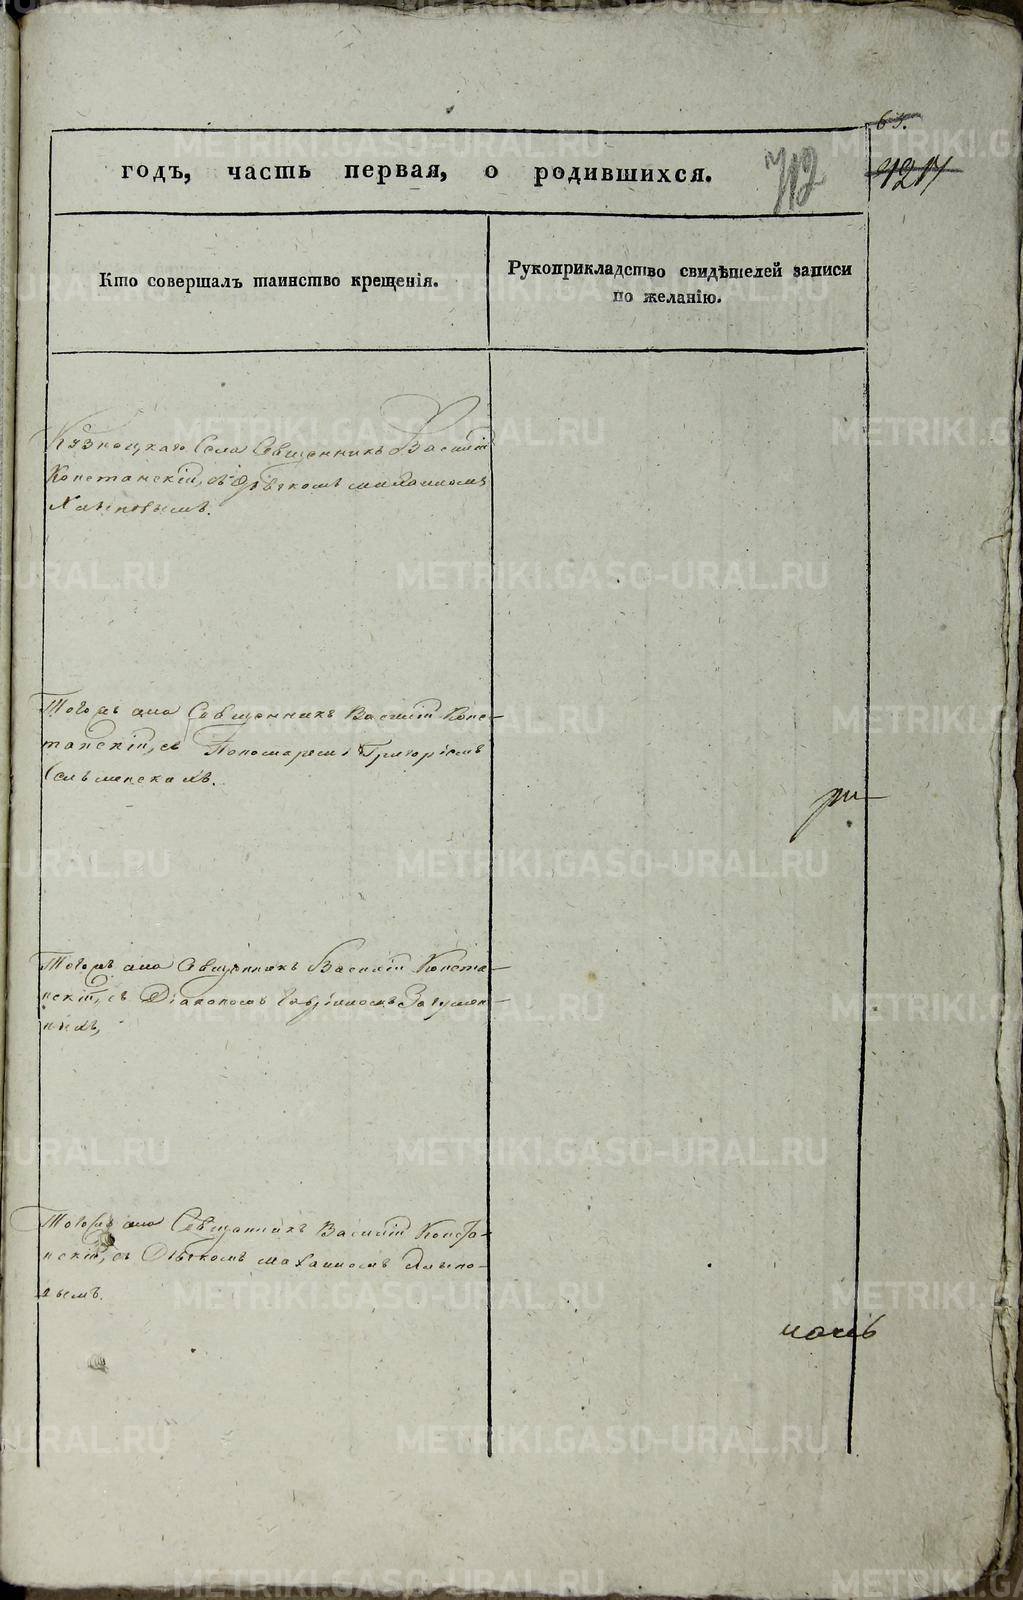 63.
годъ, часть первая, о родившихся.
712
1217
Кто совершалъ таинство крещенія.
Рукоприкладство свидѣтелей записи
по желанію.
Кузнецкаго Села Священникъ Василій
Констанскій, съ Дьякомъ
Хлыновымъ.
Тогожъ села Священникъ Василій Конс-
танскій, съ Пономаремъ Григоріемъ
Тогожъ села Священникъ Василій Конста-
нскій, съ Діакономъ Гавріиломъ Загумен-
ныхъ,
Тогожъ села Священникъ Василій Конста-
нскій, съ Дьякомъ Хлыно-
вымъ.
METRIKI.GASO-URAL.RU